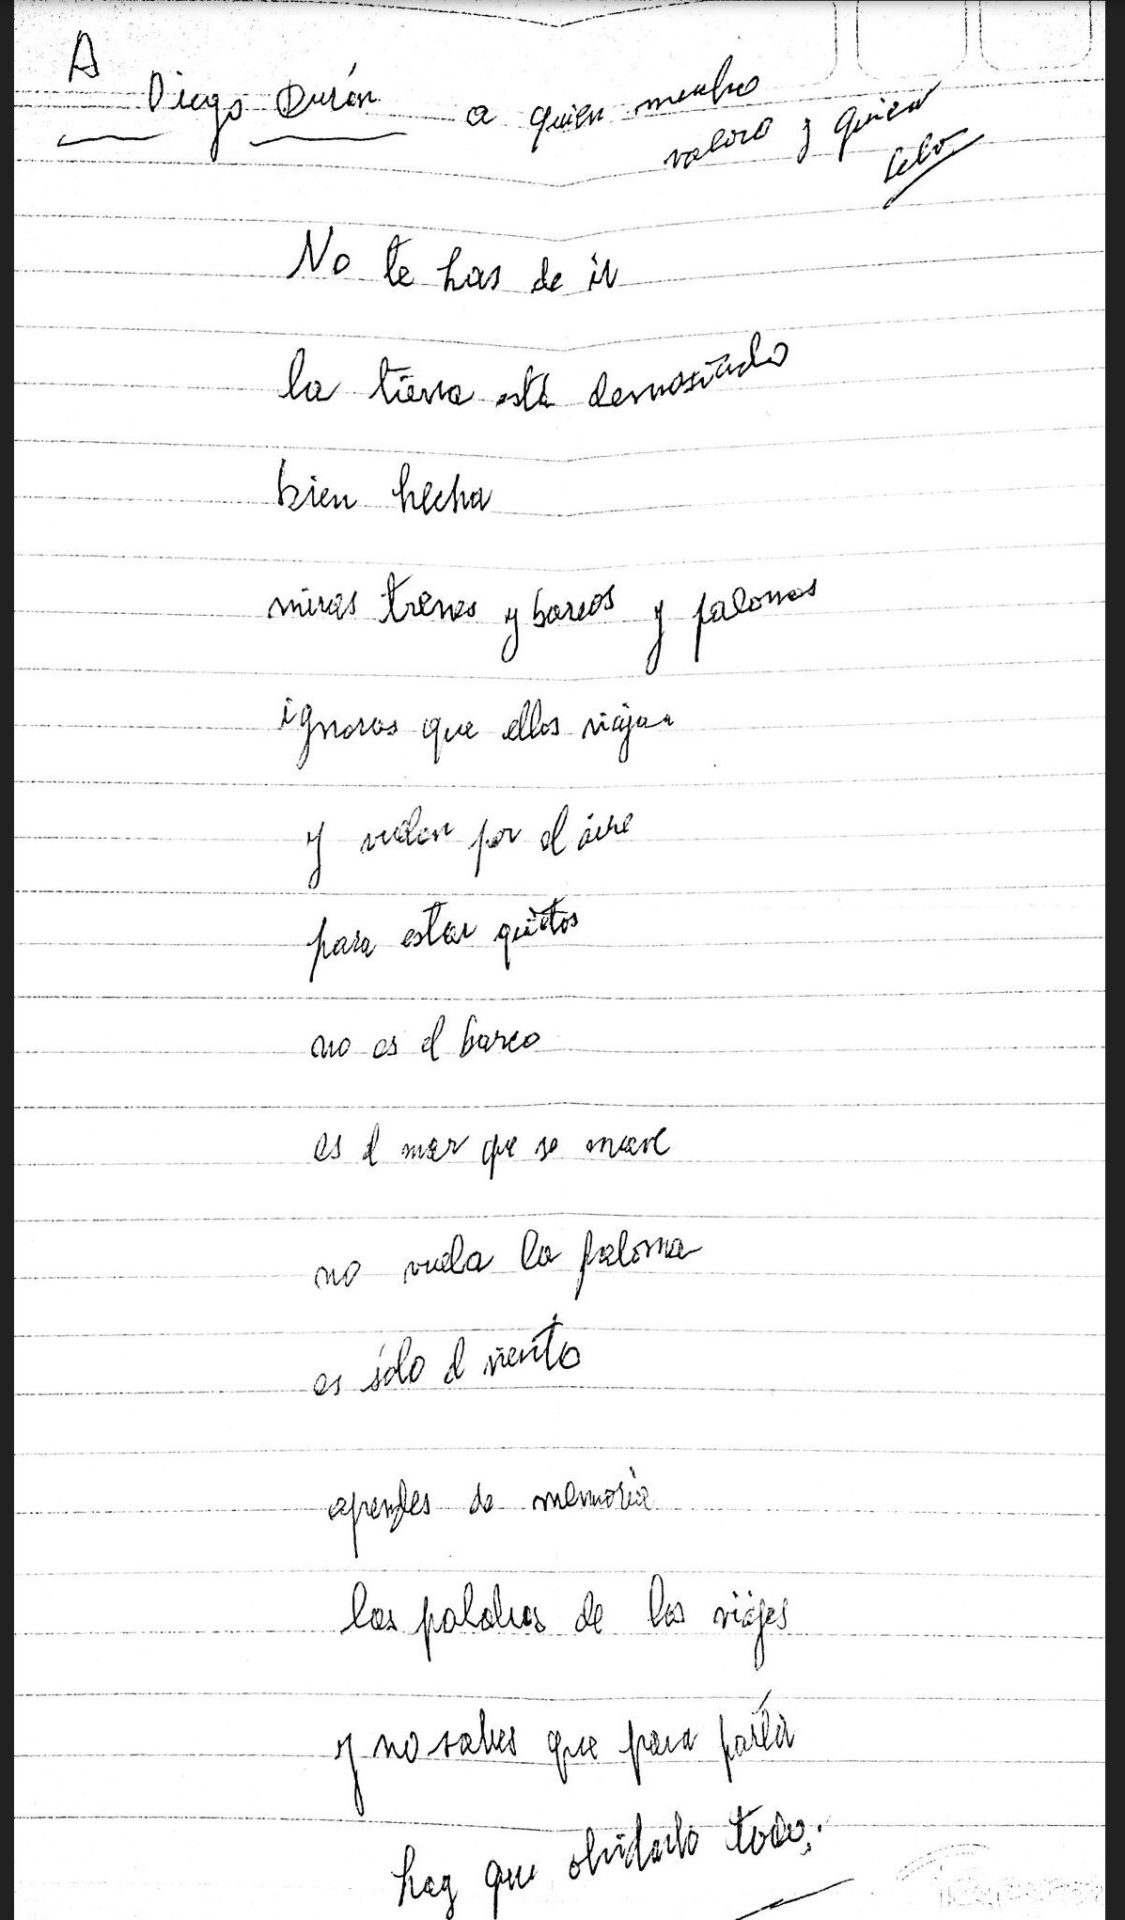 A
Diego Durán a quien mucho
valoro y quien
leló
No te has de ir
la tierra está demasiado
bien hecha
miras trenes y barcos y palomas
ignoras que ellos viajan
y vuelan por el aire
para estar quietos
no es el barco
es el mar que se mueve
no vuela la paloma
es sólo el viento
aprendes de memoria
las palabras de los viajes
y no sabes que para partir
hay que olvidarlo todo.